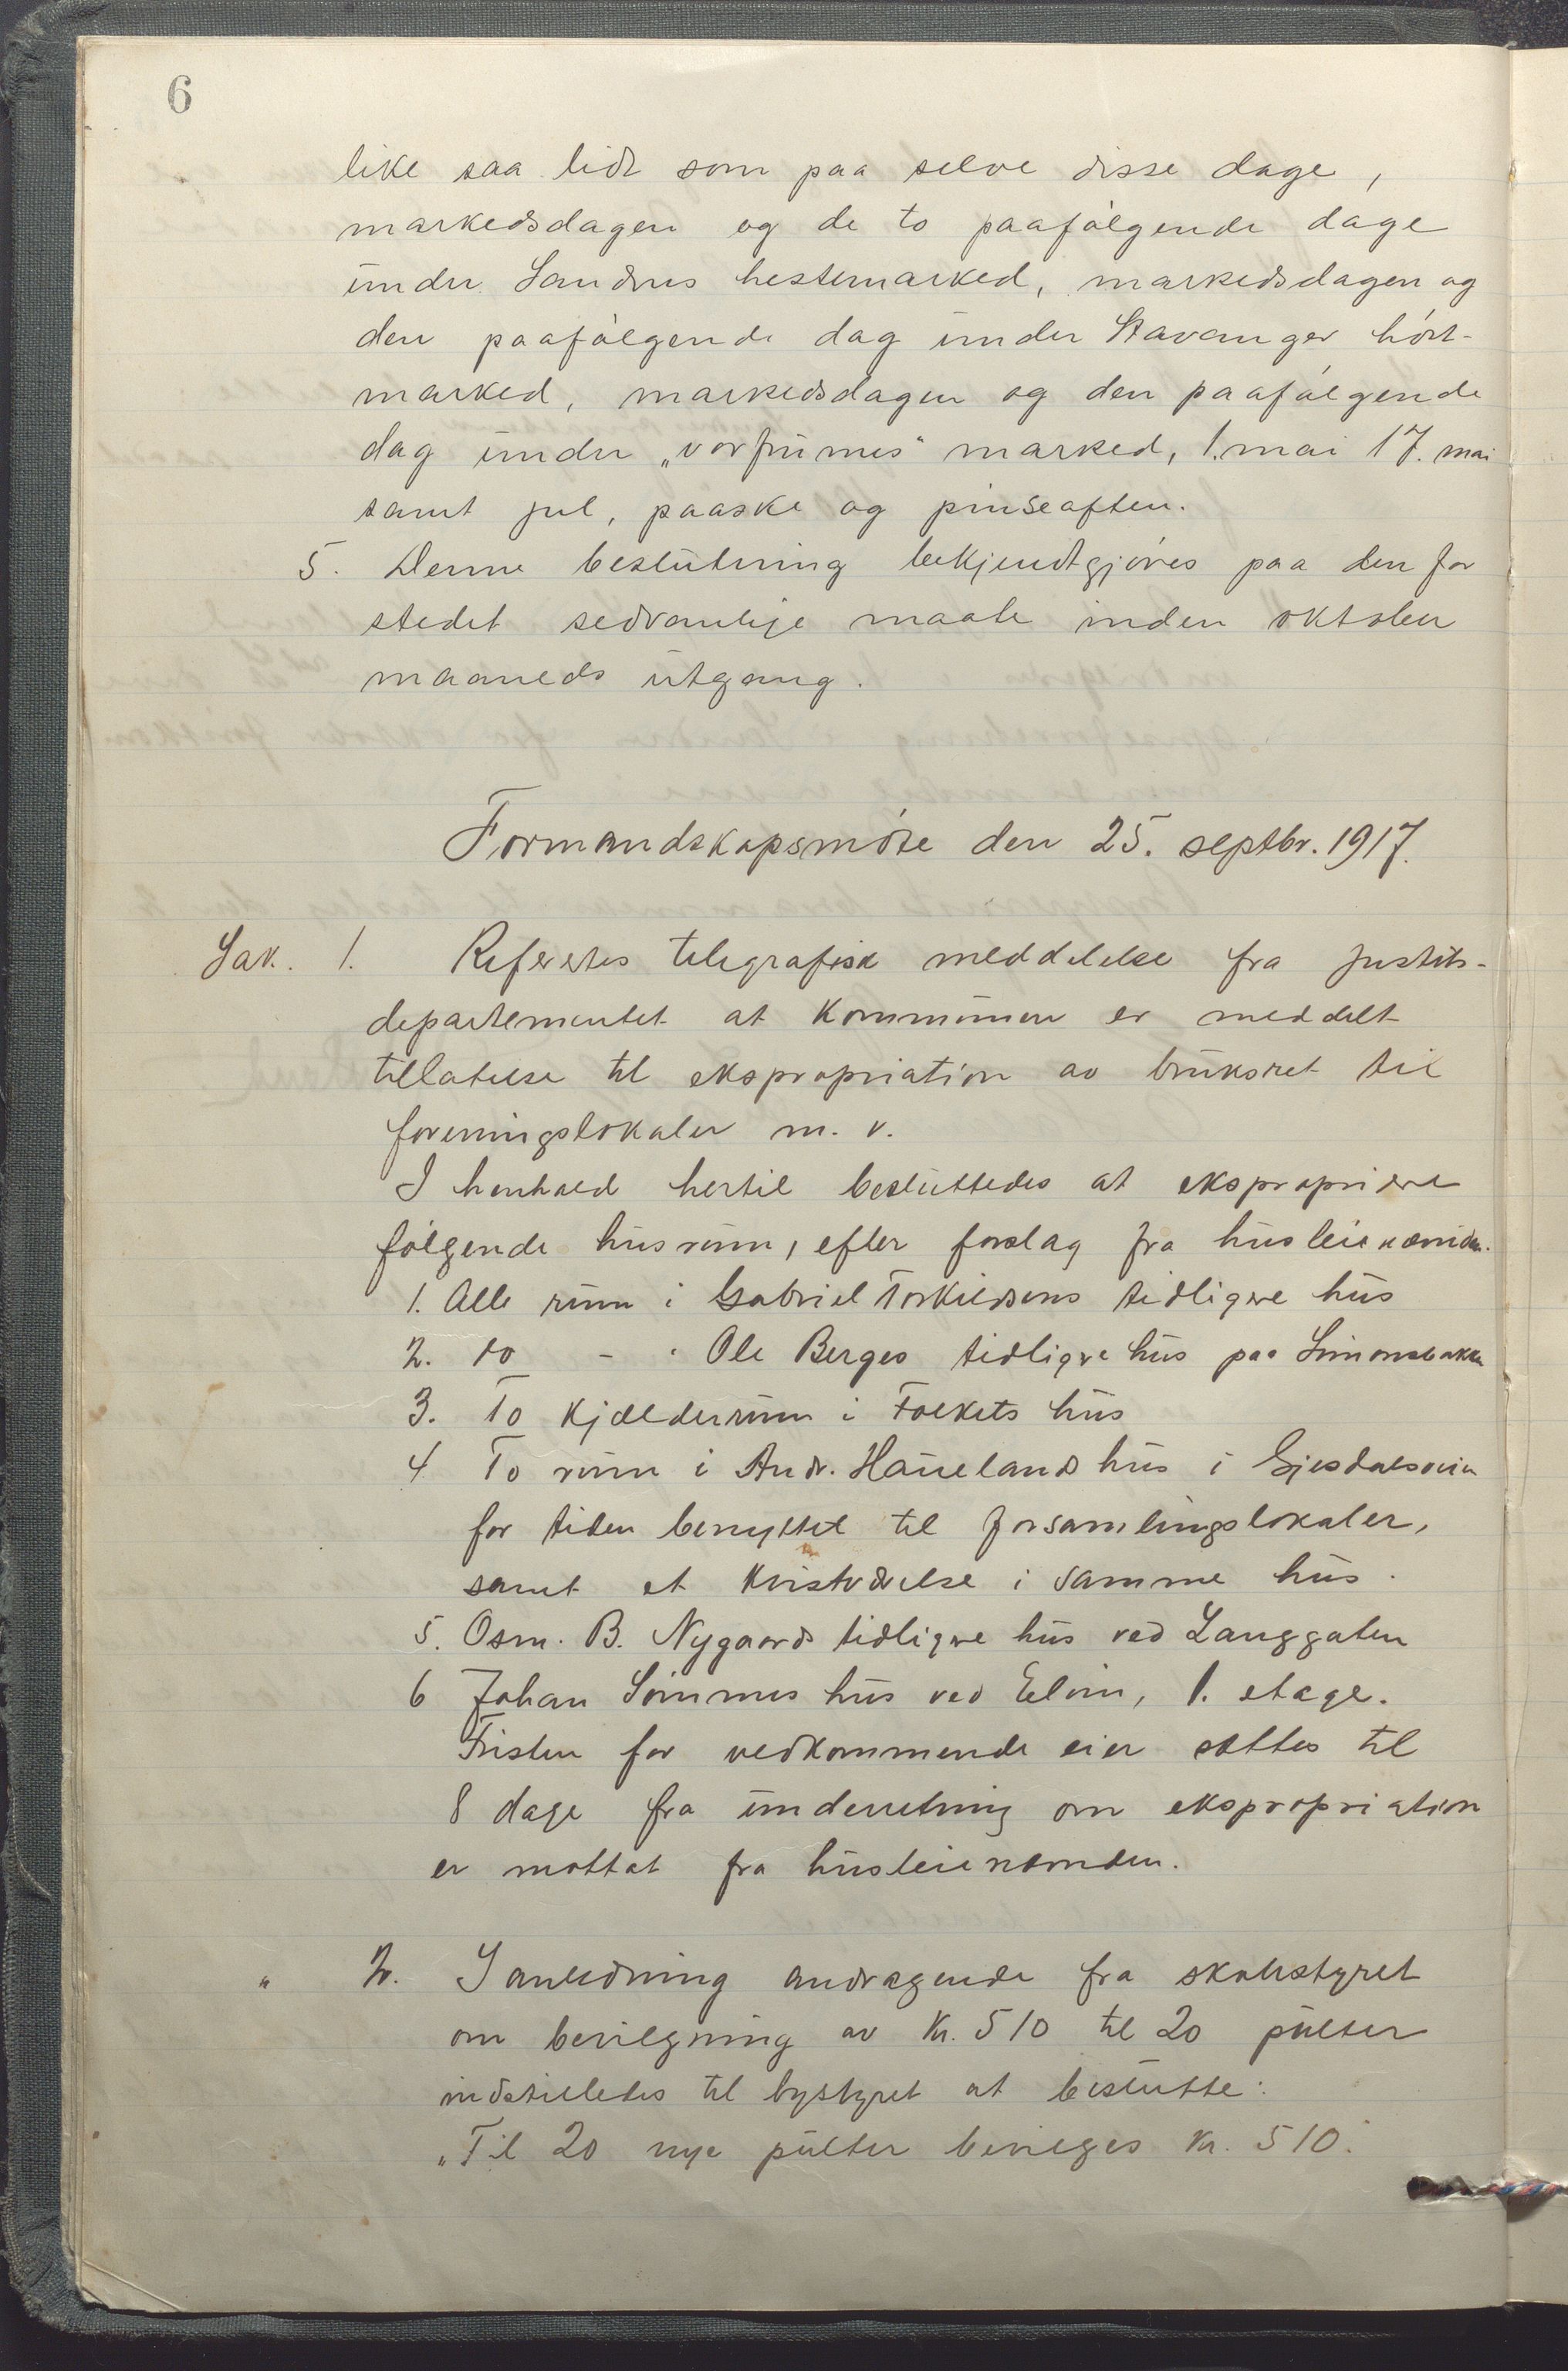 6
like saa lidt som paa selve disse dage,
markedsdagen og de to paafølgende dage
under Sandnes hestemarked, markedsdagen og
den paafølgende dag under Stavanger høst-
marked, markedsdagen og den paafølgende
dag under „vorfrumes" marked, 1. mai 17. mai
samt jul, paaske og pinseaften.
5. Denne beslutning bekjendtgjøres paa den for
stedet sedvanlige maate inden oktober
maaneds utgang.
Formandskapsmøte den 25. septbr. 1917.
Sak. 1. Refertes telegrafisk meddelelse fra justits-
departementet at kommunen er meddelt
tillatelse til ekspropriation av bruksret til
foreningslokaler m. v.
I henhold hertil besluttedes at ekspropriere
følgende husrum, efter forslag fra husleienemnden.
1. Alle rum i Gabriel Torkildsens tidligere hus
2. do - " Ole Berges tidligere hus paa Simonsbakken
3. To kjælderrum i Folkets hus
4 To rum i Andr. Hauelands hus i Gjesdalsveien
for tiden benyttet til forsamlingslokaler,
samt et kvistværelse i samme hus.
5. Osm. B. Nygaards tidligere hus ved Langgaten
6 Johan Sømmes hus ved Elven, 1. etage.
Fristen for vedkommende eier sættes til
8 dage fra underretning om ekspropriation
er mottat fra husleienemnden.
" 2. I anledning andragende fra skolestyret
om bevilgning av kr. 510 til 20 pulter
indstilledes til bystyret at beslutte:
„Til 20 nye pulter bevilges kr. 510.